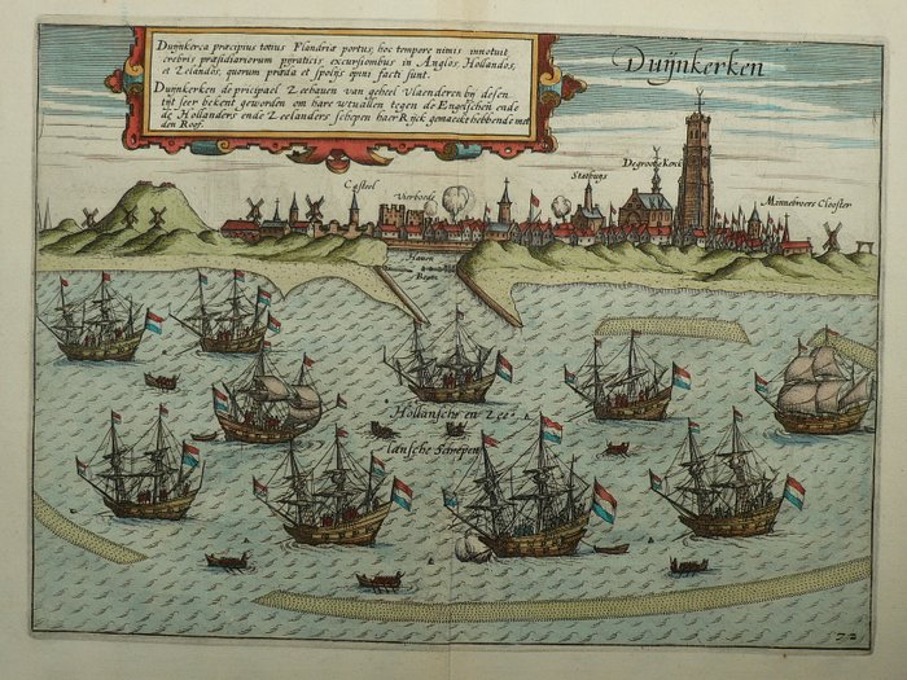 Duijnkerca præcipius totius Flandriæ portus, hoc tempore nimis innotuit
crebris præsidiariorum pyraticis excursionibus in Anglos, Hollandos,
et Zelandos, quorum præda et spolijs opini facti sunt.
Duijnkerken de pricipael Zeehauen van geheel Vlaenderen bij desen
tijt seer bekent geworden om hare wtuallen tegen de Engelschen ende
de Hollanders ende Zeelanders schepen haer Rijck gemaeckt hebbende met
den Roof.
Duijnkerken
Casteel
Vierboede
Stathuijs
De groote Kerck
Minnebroers Clooster
Hauen
Hollansche en Zee
lansche Schepen
72